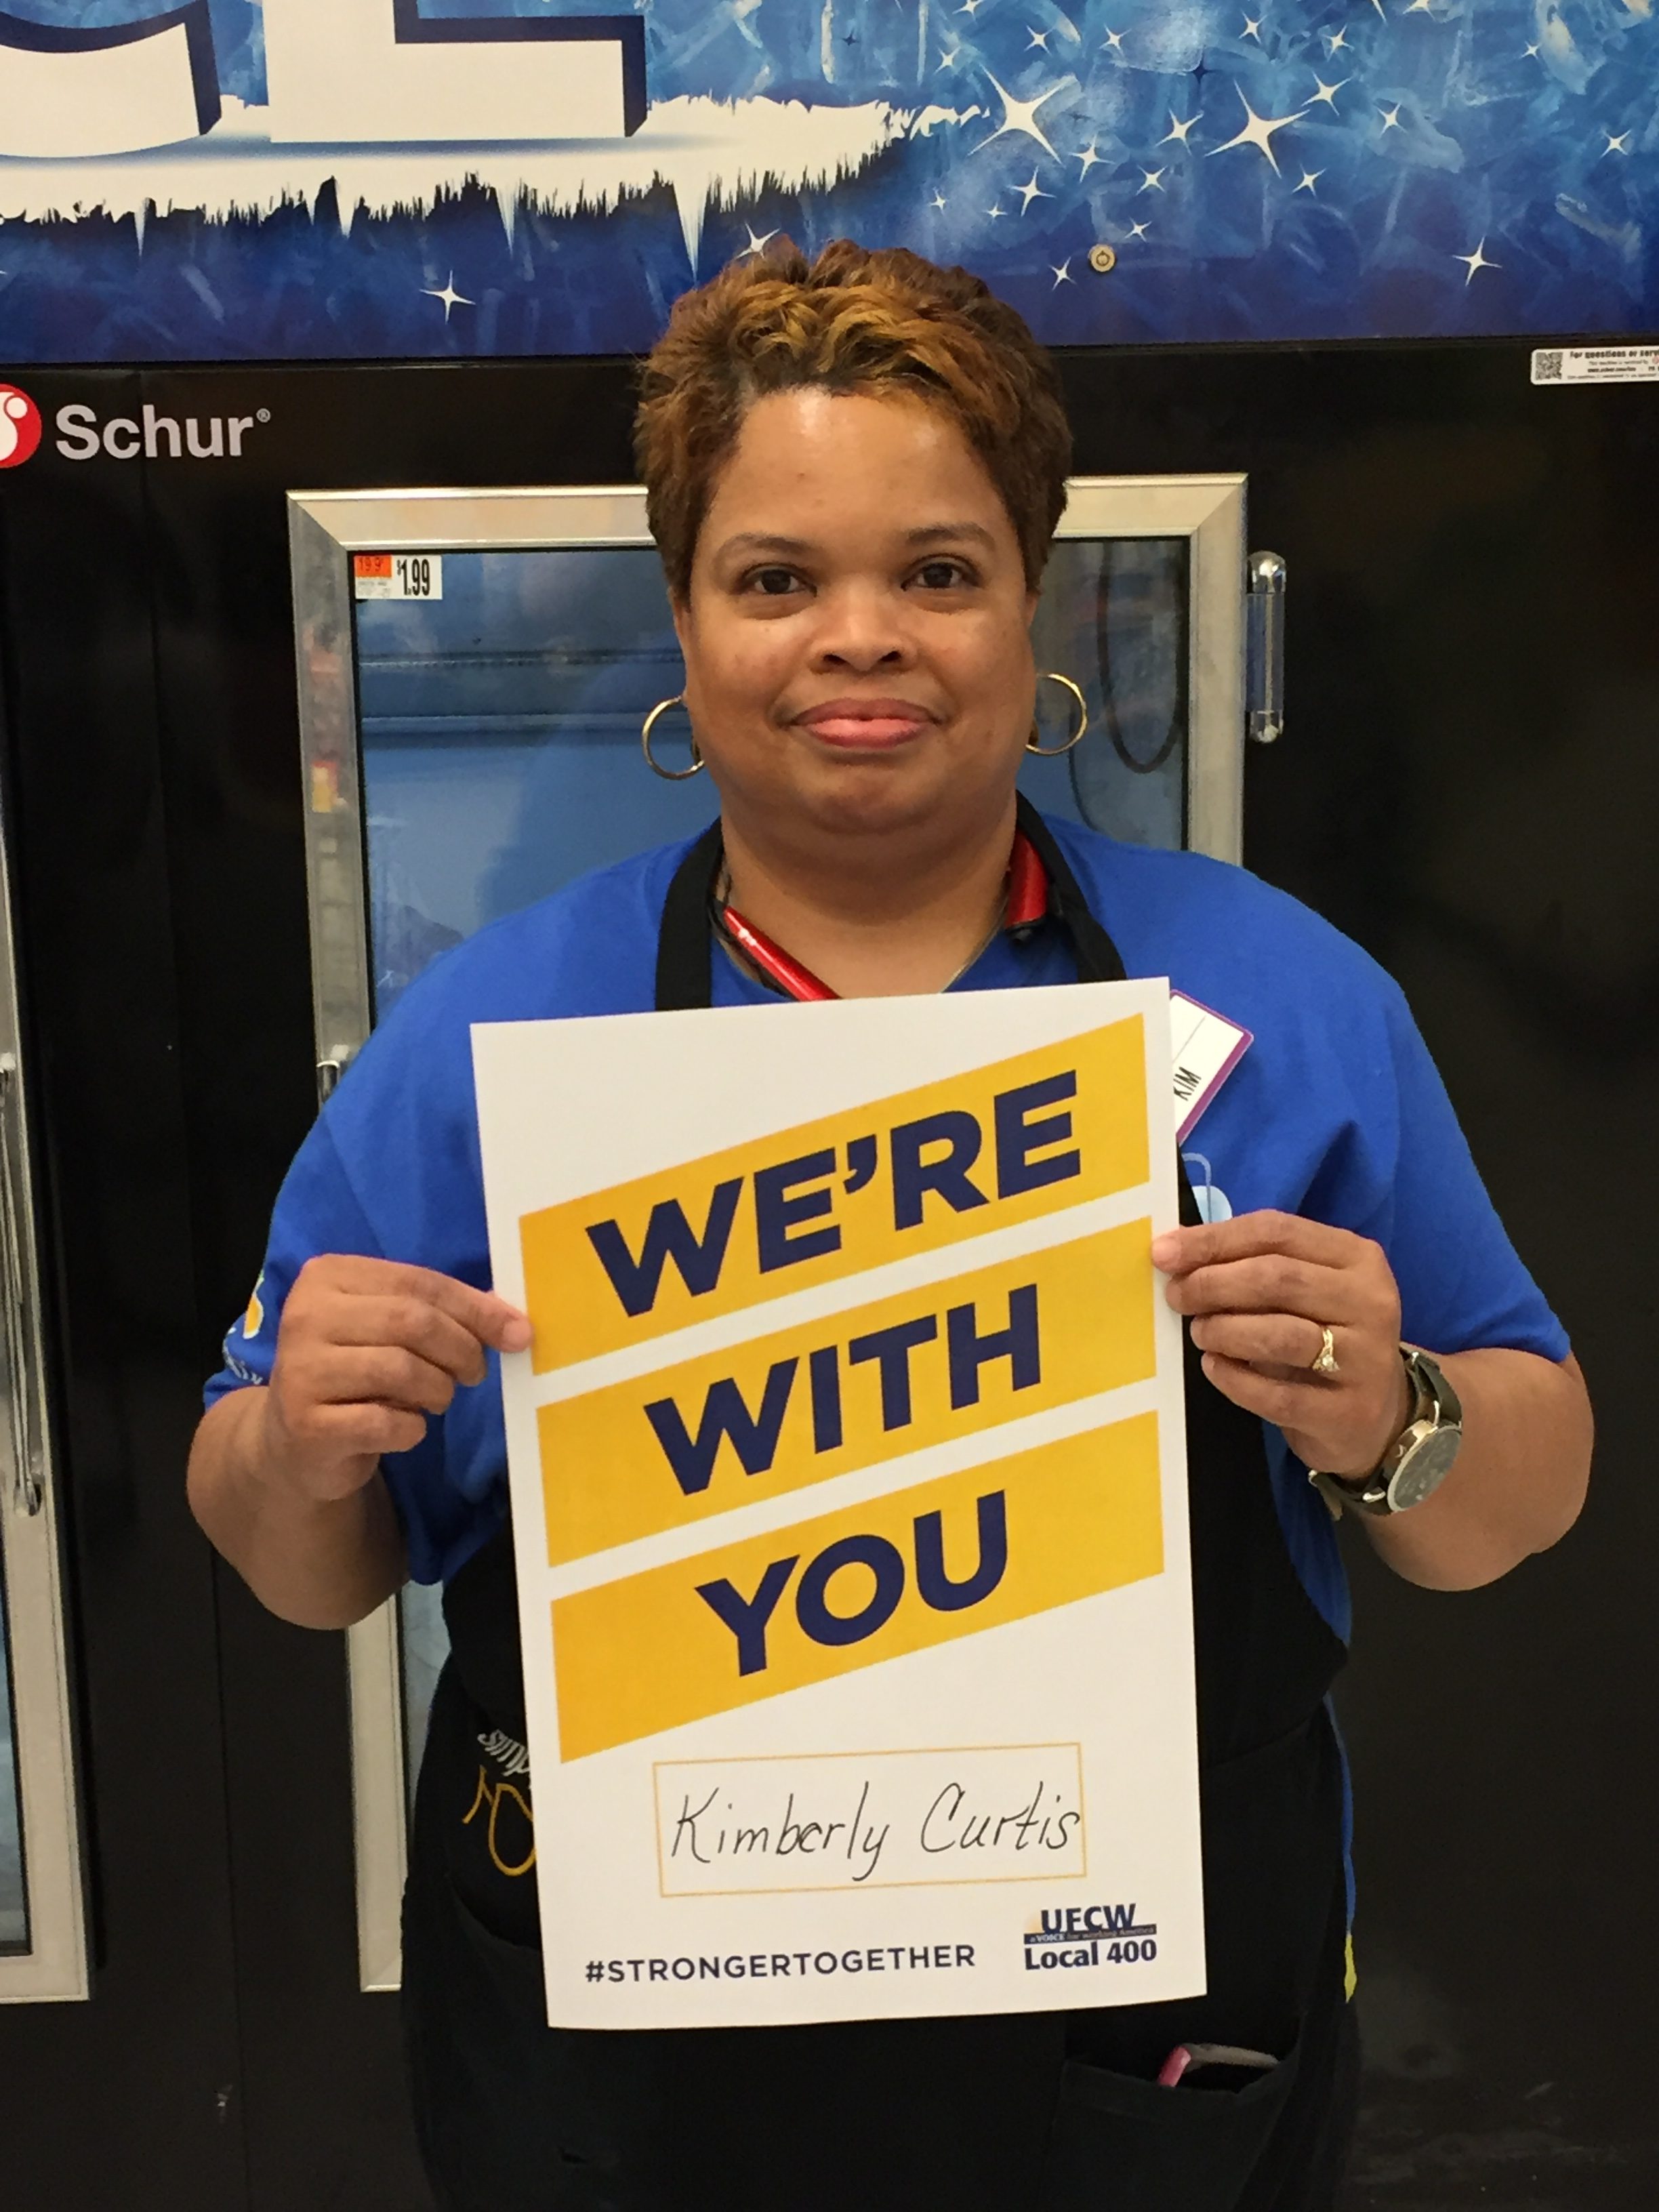 CE
Schur®
For questions or serv
19.9¢
$1.99
KIM
WE'RE
WITH
YOU
Kimberly Curtis
#STRONGERTOGETHER
UFCW
a VOICE for working America
Local 400